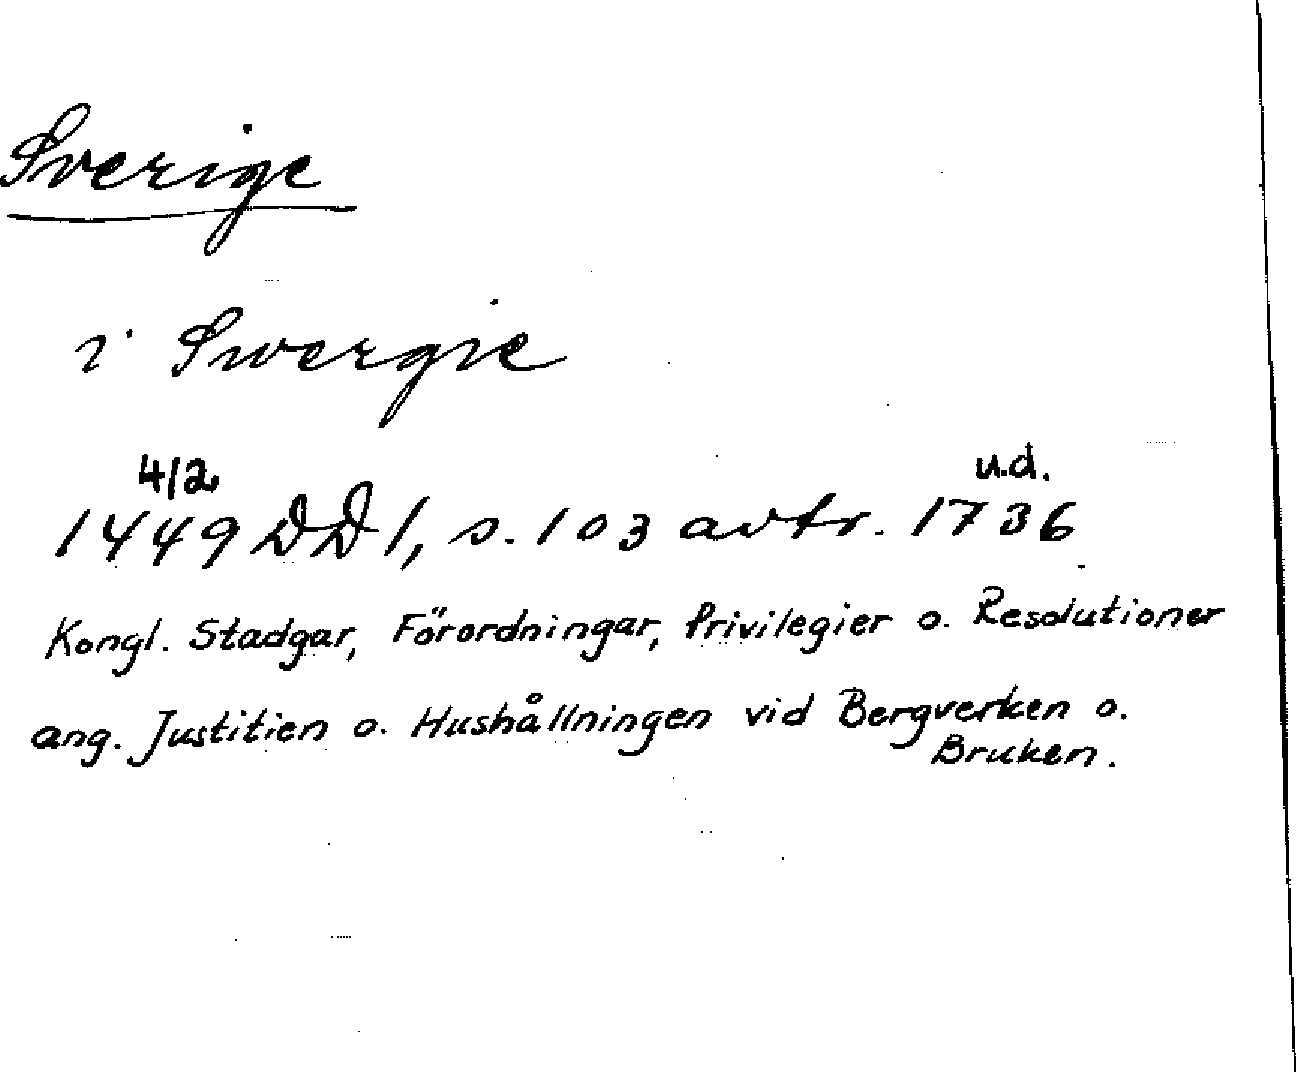 Sverige
i Swergie
4/2 u.d.
1449 DD 1, s. 103 avtr. 1736
Kongl. Stadgar, Förordningar, Privilegier o. Resolutioner
ang. Justitien o. Hushållningen vid Bergverken o.
Bruken.